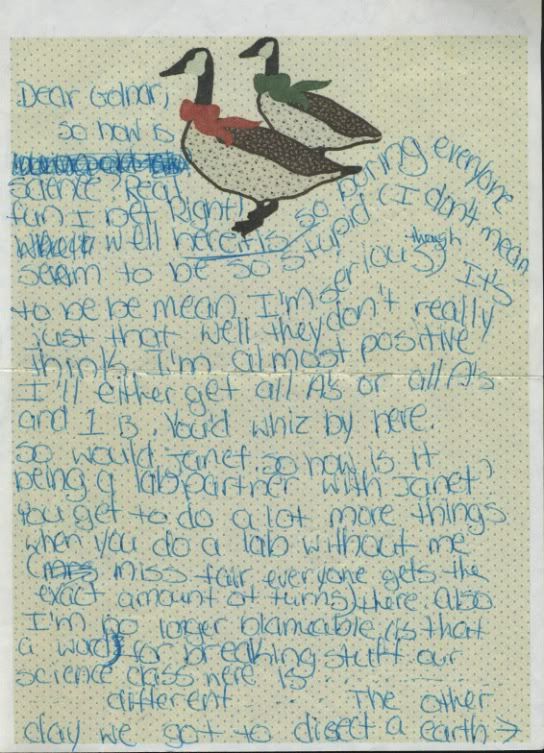 Dear Golnar,
so how is
science? Real
fun I bet Right!
well here it is so boring everyone
seam to be so stupid (I don't mean
to be be mean I'm serious though) It's
just that well they don't really
think. I'm almost positive
I'll either get all A's or all A's
and 1 B. You'd whiz by here.
so would Janet. so how is it
being a lab partner with Janet?
You get to do a lot more things
when you do a lab without me
(miss fair, everyone gets the
exact amount of turns) there. Also
I'm no longer blamable (is that
a word) for breaking stuff our
science class here is ..........
different .... The other
day we got to disect a earth →